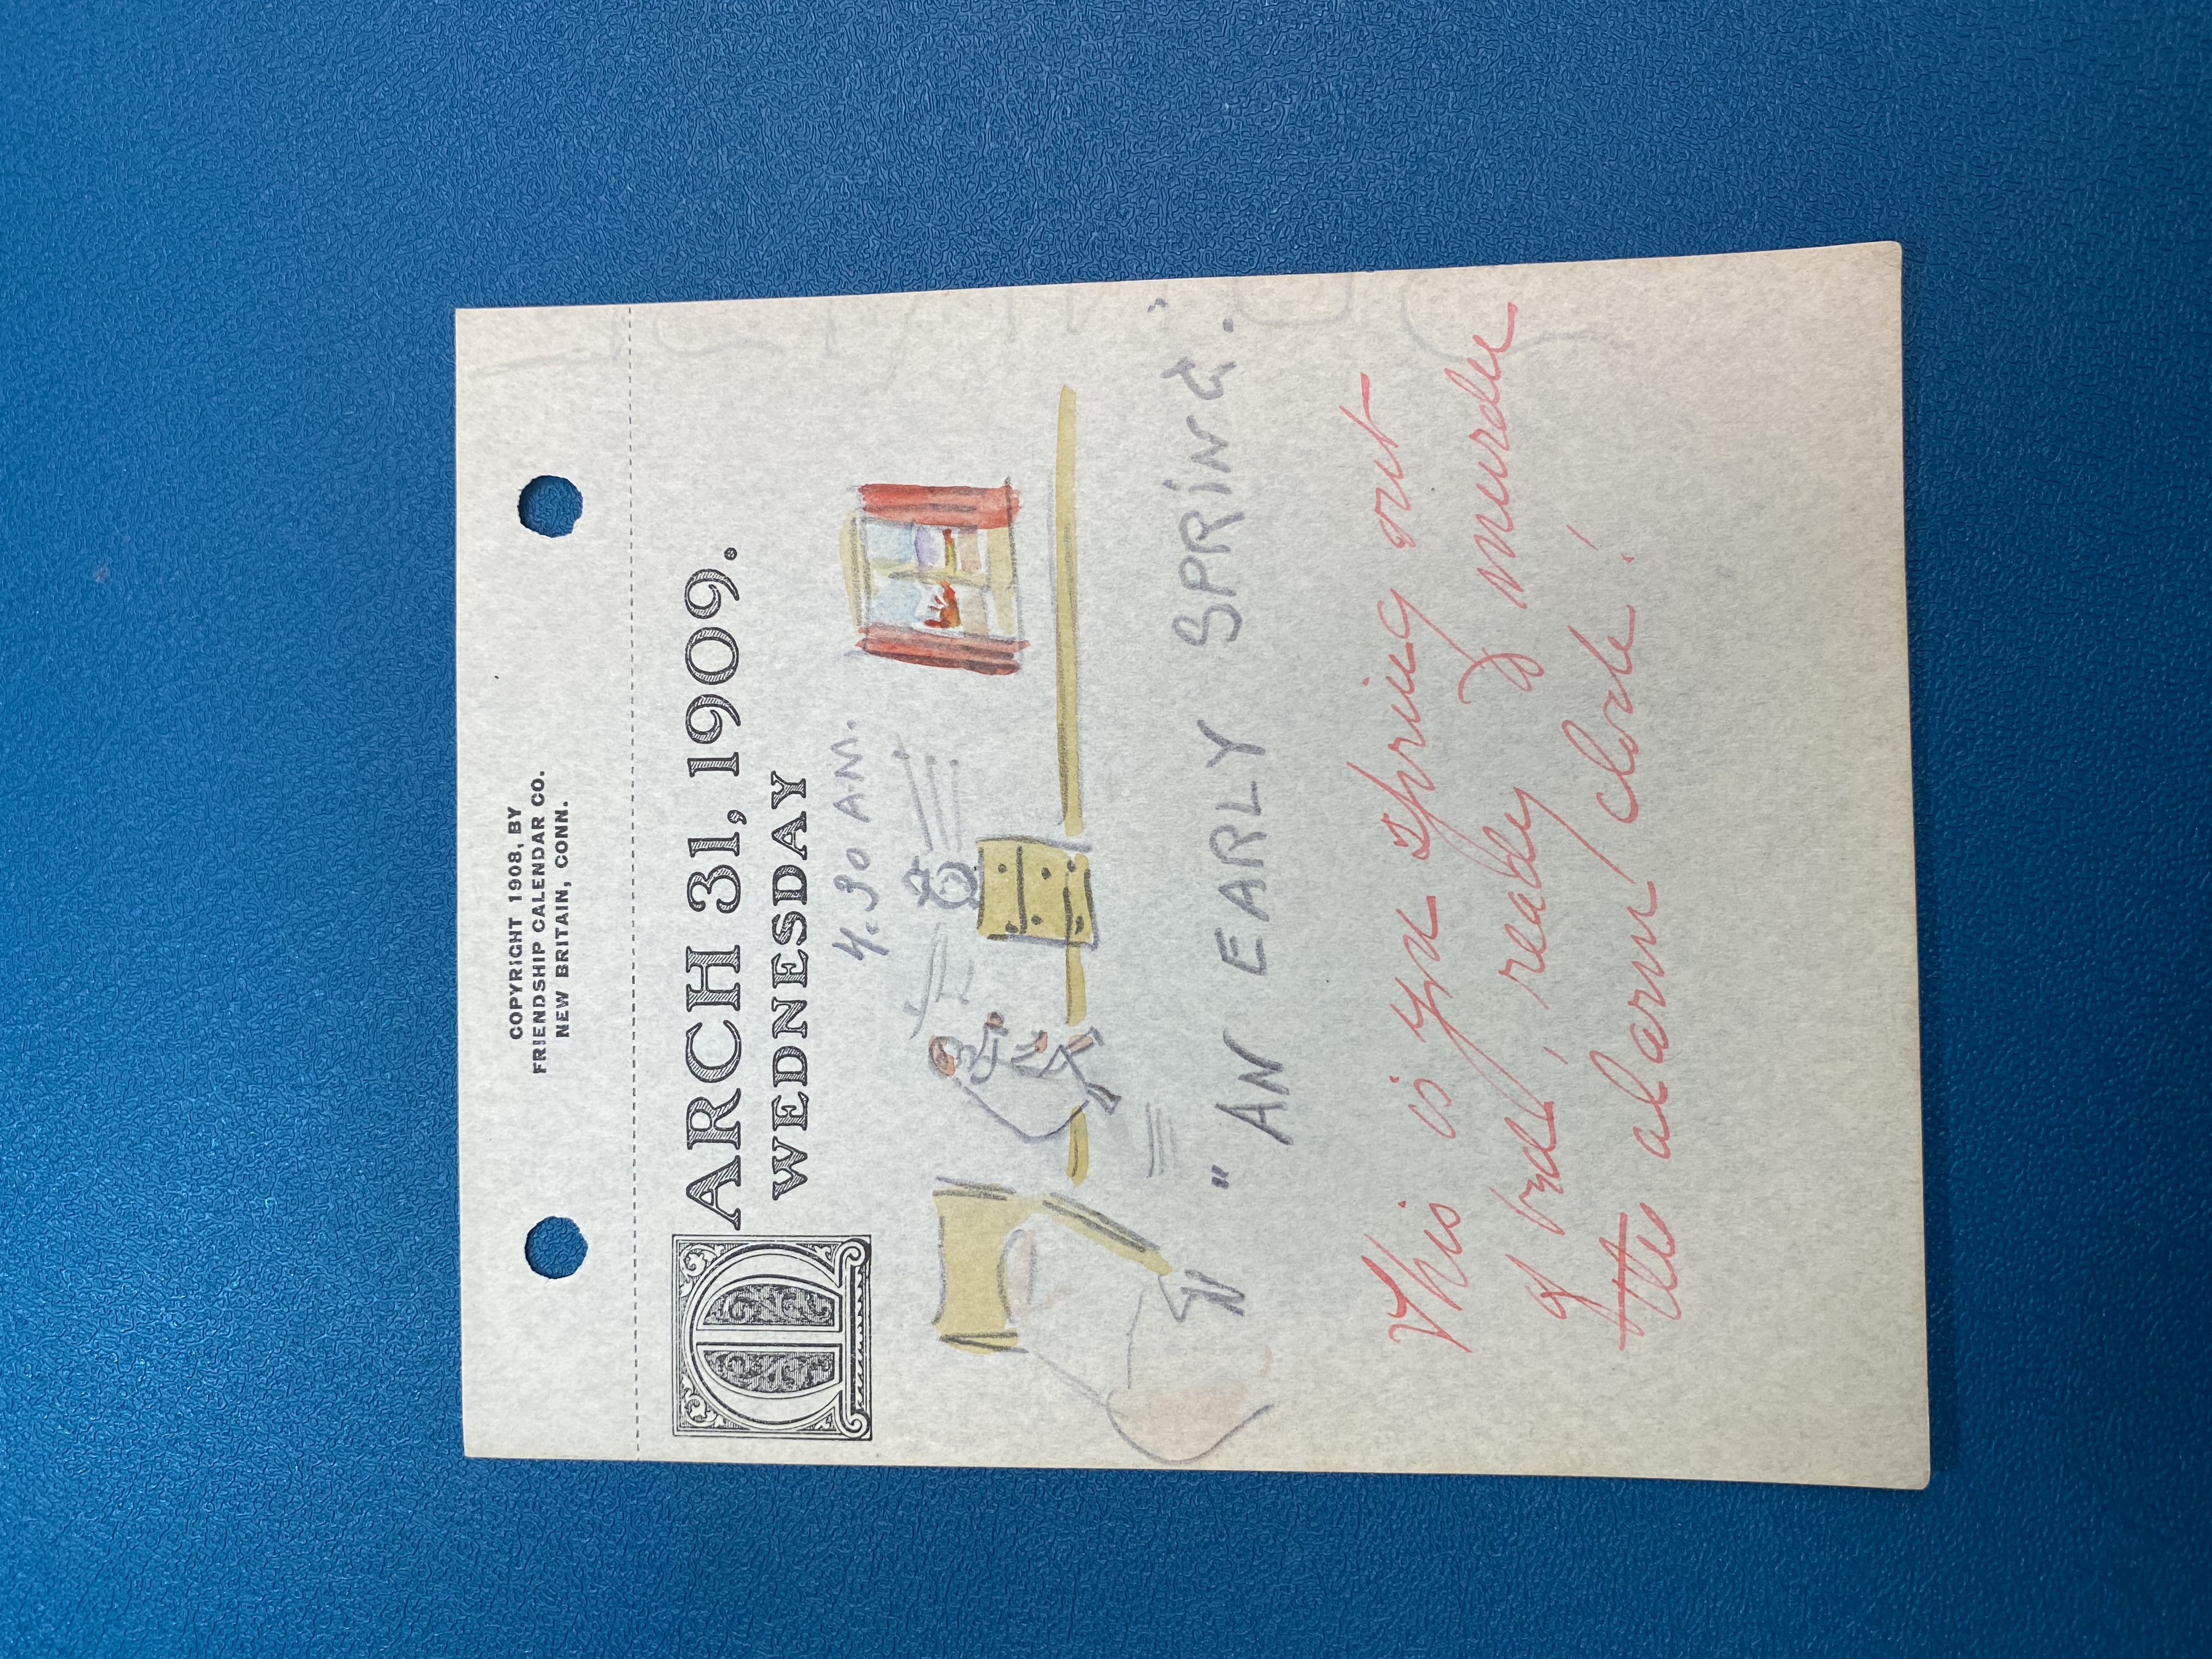 COPYRIGHT 1908, BY
FRIENDSHIP CALENDAR CO.
NEW BRITAIN, CONN.
MARCH 31, 1909.
WEDNESDAY
4.30 A.M.
"AN EARLY SPRING."
This is you spring out
of bed, ready to murder
the alarm clock!